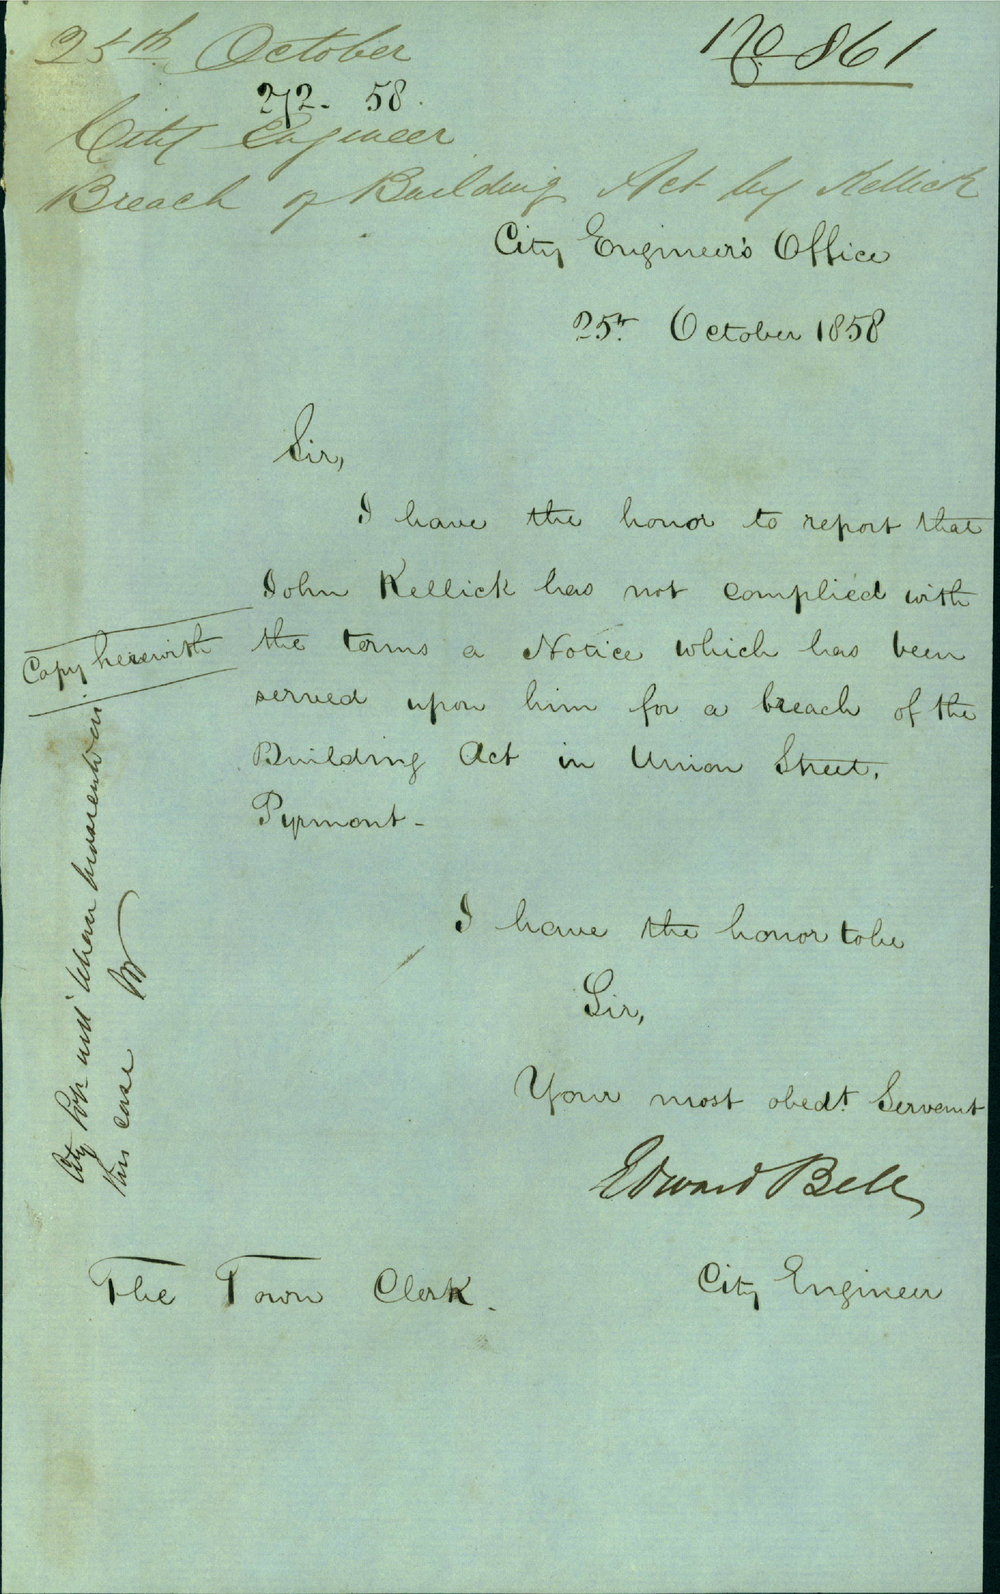 25th October
No 861
272. 58.
City Engineer
Breach of Building Act by Kellick
City Engineer's Office
25th October 1858
Sir,
I have the honor to report that
John Kellick has not complied with
the terms a Notice which has been
served upon him for a breach of the
Building Act in Union Street,
Pyrmont -
Copy herewith
I have the honor to be
Sir,
Your most obedt. Servant
Edward Bell
City Engineer
The Town Clerk.
City
this case